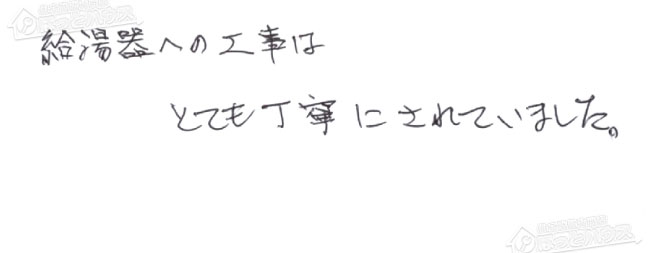 給湯器への工事は
とても丁寧にされていました。